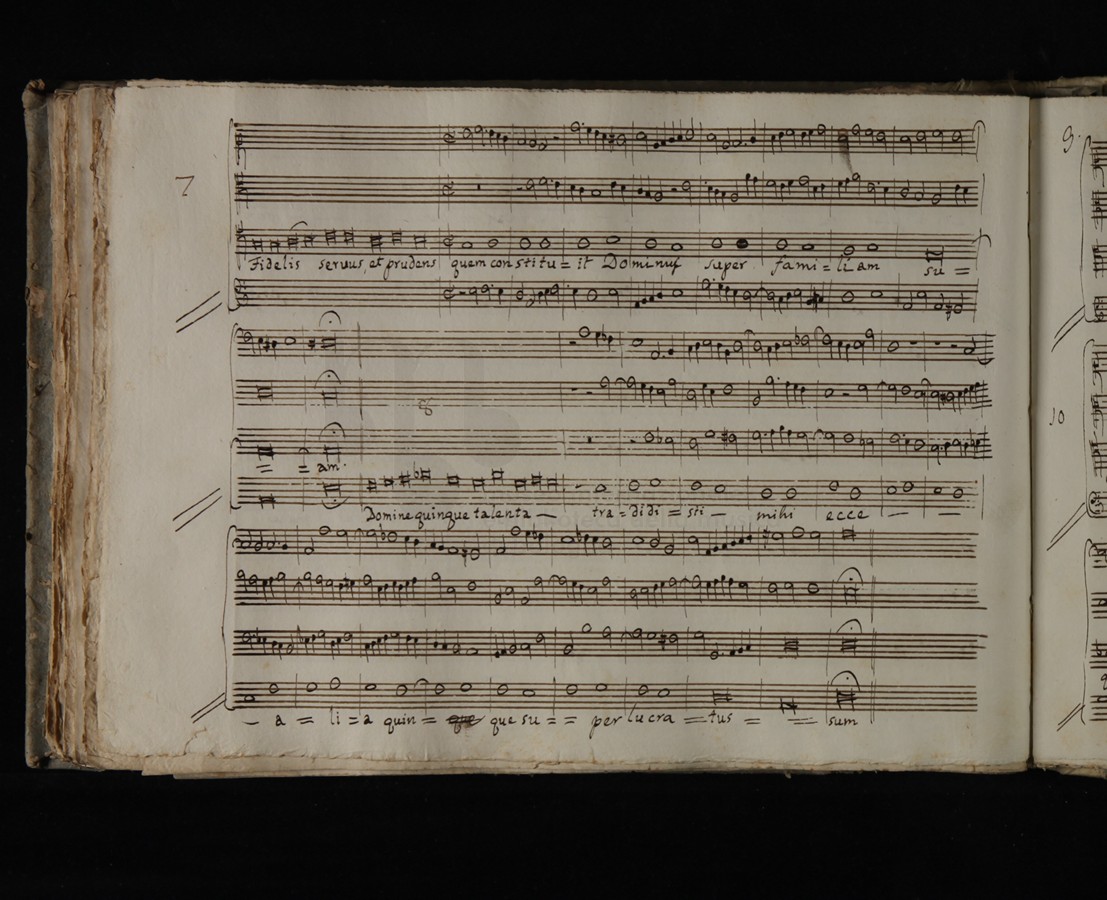 9.
7
Fidelis seruus et prudens quem constitu = it Dominus super fami = liam su =
8
10
= = am.
Domine quinque talenta — tra = didi = sti — mihi ecce — —
— a = li = a quin = que su = = per lucra = tus = = sum